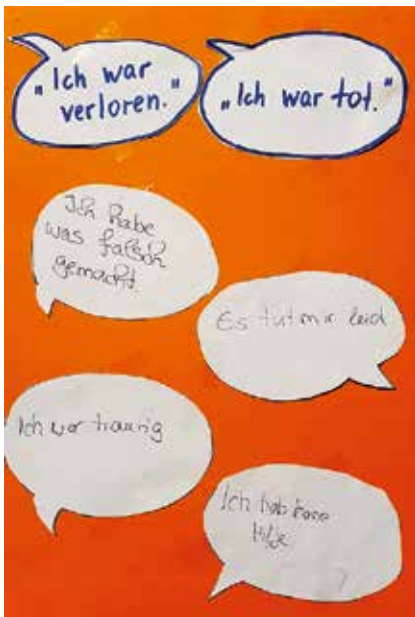 „Ich war
verloren."
„Ich war tot."
Ich habe
was falsch
gemacht.
Es tut mir leid
Ich war traurig
Ich hab keine
Hilfe